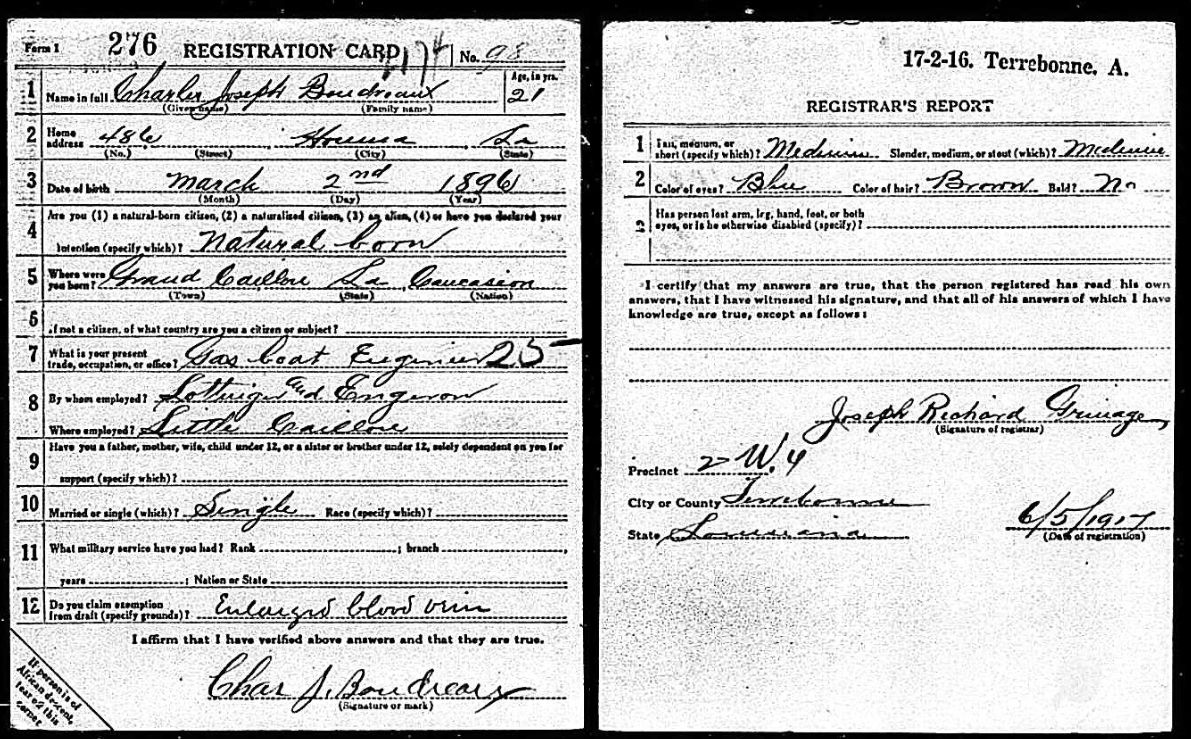 Form 1 276 REGISTRATION CARD 174 No. 98
1 Name in full Charles Joseph Boudreaux Age, in yrs. 21
(Given name) (Family name)
2 Home address 486 Houma La
(No.) (Street) (City) (State)
3 Date of birth March 2nd 1896
(Month) (Day) (Year)
4 Are you (1) a natural-born citizen, (2) a naturalized citizen, (3) an alien, (4) or have you declared your
intention (specify which)? Natural born
5 Where were you born? Grand Caillou La Caucasion
(Town) (State) (Nation)
6 If not a citizen, of what country are you a citizen or subject?
7 What is your present
trade, occupation, or office? Gas boat Engineer 25
8 By whom employed? Lottinger and Engeron
Where employed? Little Caillou
9 Have you a father, mother, wife, child under 12, or a sister or brother under 12, solely dependent on you for
support (specify which)?
10 Married or single (which)? Single Race (specify which)?
11 What military service have you had? Rank ; branch ,
years ; Nation or State
12 Do you claim exemption
from draft (specify grounds)? Enlarged blood vein
I affirm that I have verified above answers and that they are true.
Chas J. Boudreaux
(Signature or mark)
If person is of
African descent,
tear off this
corner
17-2-16. Terrebonne, A.
REGISTRAR'S REPORT
1 Tall, medium, or
short (specify which)? Medium Slender, medium, or stout (which)? Medium
2 Color of eyes? Blue Color of hair? Brown Bald? No
Has person lost arm, leg, hand, foot, or both
eyes, or is he otherwise disabled (specify)?
I certify that my answers are true, that the person registered has read his own
answers, that I have witnessed his signature, and that all of his answers of which I have
knowledge are true, except as follows:
Joseph Richard Grinage
(Signature of registrar)
Precinct 2 W. 4
City or County Terrebonne
State Louisiana 6/5/1917
(Date of registration)